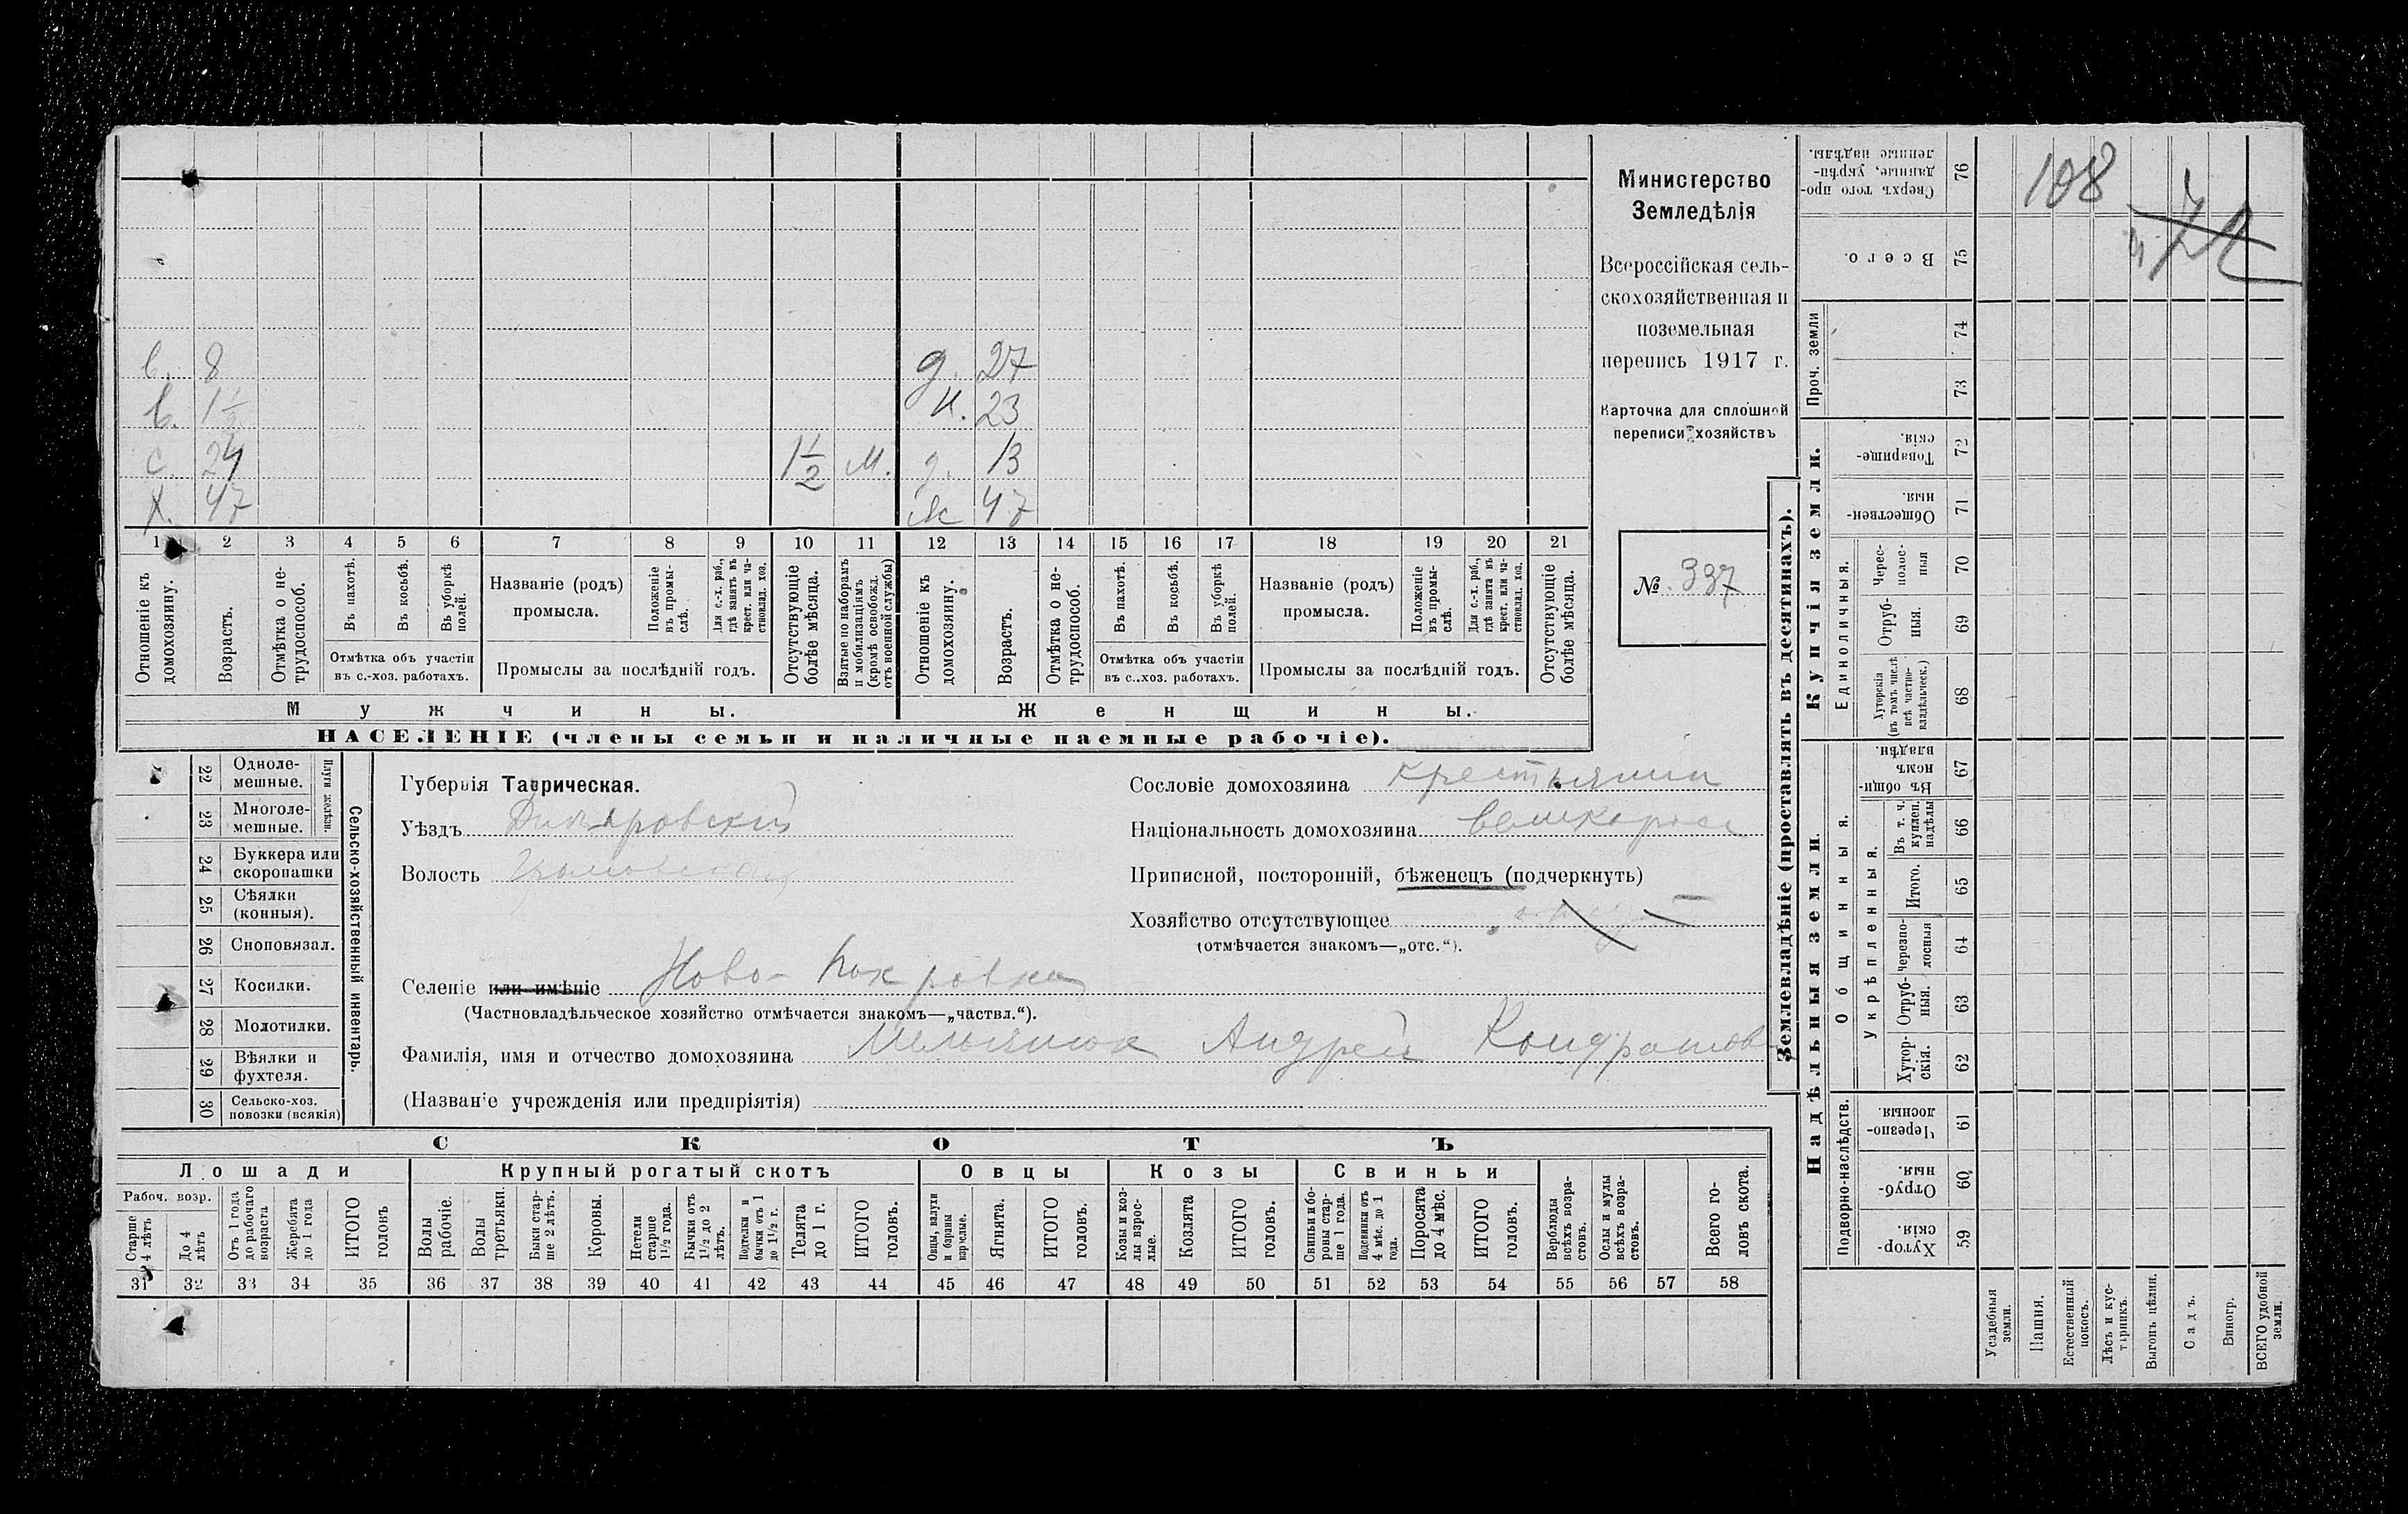 Министерство
Земледѣлія
Всероссійская сель-
скохозяйственная и
поземельная
перепись 1917 г.
Карточка для сплошной
переписи хозяйствъ
№ 337
в. 8
в. 1½
с. 24 1½ м.
х. 47
д. 27
н. 23
д. 13
ж 47
1 2 3 4 5 6 7 8 9 10 11 12 13 14 15 16 17 18 19 20 21
Отношеніе къ домохозяину.
Возрастъ.
Отмѣтка о не-трудоспособ.
Въ пахотѣ.
Въ косьбѣ.
Въ уборкѣ полей.
Отмѣтка объ участіи
въ с.-хоз. работахъ.
Названіе (родъ)
промысла.
Положеніе въ промы-слѣ.
Для с.-х. раб., гдѣ занятъ въ крест. или ча-стновлад. хоз.
Промыслы за послѣдній годъ.
Отсутствующіе болѣе мѣсяца.
Взятые по наборамъ и мобилизаціямъ (кромѣ освобожд. отъ военной службы)
Отношеніе къ домохозяину.
Возрастъ.
Отмѣтка о не-трудоспособ.
Въ пахотѣ.
Въ косьбѣ.
Въ уборкѣ полей.
Отмѣтка объ участіи
въ с..хоз. работахъ.
Названіе (родъ)
промысла.
Положеніе въ промы-слѣ.
Для с.-х. раб., гдѣ занята въ крест. или ча-стновлад. хоз.
Промыслы за послѣдній годъ.
Отсутствующіе болѣе мѣсяца.
Мужчины.
Женщины.
НАСЕЛЕНІЕ (члены семьи и наличные наемные рабочіе).
22 Одноле-мешные.
23 Многоле-мешные.
Плуги желѣзн.
24 Буккера или скоропашки
25 Сѣялки (конныя).
26 Сноповязал.
27 Косилки.
28 Молотилки.
29 Вѣялки и фухтеля.
30 Сельско-хоз. повозки (всякія)
Сельско-хозяйственный инвентарь.
Губернія Таврическая.
Уѣздъ
Волость
Сословіе домохозяина крестьянин
Національность домохозяина великоросс
Приписной, посторонній, бѣженецъ (подчеркнуть)
Хозяйство отсутствующее
(отмѣчается знакомъ—„отс.“).
Селеніе или имѣніе Ново-Покровка
(Частновладѣльческое хозяйство отмѣчается знакомъ—„частвл.“).
Фамилія, имя и отчество домохозяина Мельнюк Андрей Кондратов
(Названіе учрежденія или предпріятія)
СКОТЪ
Лошади
Крупный рогатый скотъ
Овцы
Козы
Свиньи
Рабоч. возр.
Старше 4 лѣтъ
До 4 лѣтъ
Отъ 1 года до рабочаго возраста
Жеребята до 1 года
ИТОГО головъ
Волы рабочіе.
Волы третьяки.
Быки стар-ше 2 лѣтъ.
Коровы.
Нетели старше 1½ года.
Бычки отъ 1½ до 2 лѣтъ.
Подтелки и бычки отъ 1 до 1½ г.
Телята до 1 г.
ИТОГО головъ.
Овцы, валухи и бараны взрослые.
Ягнята.
ИТОГО головъ.
Козы и коз-лы взрос-лые.
Козлята
ИТОГО головъ.
Свиньи и бо-ровы стар-ше 1 года.
Подсвинки отъ 4 мѣс. до 1 года.
Поросята до 4 мѣс.
ИТОГО головъ.
Верблюды всѣхъ возра-стовъ.
Ослы и мулы всѣхъ возра-стовъ.
Всего го-ловъ скота.
31 32 33 34 35 36 37 38 39 40 41 42 43 44 45 46 47 48 49 50 51 52 53 54 55 56 57 58
Землевладѣніе (проставлять въ десятинахъ).
Купчія земли.
Надѣльныя земли.
Сверхъ того про-данные, укрѣп-ленные надѣлы. 76
Всего. 75
Проч. земли
74
73
Товарище-скія. 72
Обществен-ныя. 71
Единоличныя.
Черес-полос-ныя 70
Отруб-ныя. 69
Хуторскія (въ томъ числѣ всѣ частно-владѣльческ.) 68
Общинныя.
Въ общин-номъ владѣн. 67
Укрѣпленныя.
Въ т. ч. куплен. надѣлы 66
Итого. 65
Черезпо-лосныя 64
Отруб-ныя. 63
Хутор-скія. 62
Подворно-наслѣдств.
Черезпо-лосныя. 61
Отруб-ныя. 60
Хутор-скія. 59
Усадебныя земли.
Пашня.
Естественный покосъ.
Лѣсъ и кус-тарникъ.
Выгонъ цѣлин.
Садъ.
Виногр.
ВСЕГО удобной земли.
108